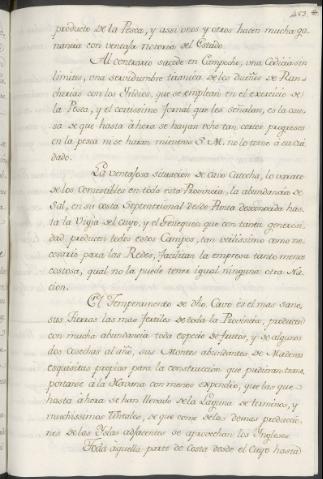 453
producto de la Pesca, y assi unos y otros hacen mucha ga-
nancia con ventaja notoria del Estado.
Al contrario sucede en Campeche, una Codicia sin
limites, una servidumbre tiranica de los dueños de Ran-
cherias con los Yndios, que se emplean en el exercicio de
la Pesca, y el cortissimo Jornal que les señalan, es la cau-
sa de que hasta ahora se hayan hecho tan cortos progresos
en la pesca ni se haran mientras S. M. no lo tome à su cui-
dado.
La ventajosa situacion de Cavo Catoche, lo varato
de los Comestibles en toda esta Provincia, la abundancia de
Sal, en su costa Septentrional desde Punta desconocida has-
ta la Vigia del Cuyo, y el Geniquen que con tanta generosi-
dad producen todos estos Campos, tan utilissimo como ne-
cesario para las Redes, facilitan la empresa tanto menos
costosa, qual no la puede tener igual ninguna otra Na-
cion.
El Temperamento de dho. Cavo es el mas sano,
sus tierras las mas fertiles de toda la Provincia, producen
con mucha abundancia toda especie de frutos, y de algunos
dos Cosechas al año, sus Montes abundantes de Maderas
exquisitas propias para la construccion que pudieran trans-
portarse à la Havana con menos expendio, que las que
hasta ahora se han llevado de la Laguna de terminos, y
muchissimos tintales, de que como de las demas produccio-
nes de las Yslas adjacentes se aprovechan los Yngleses
Toda aquella parte de Costa desde el Cuyo hasta